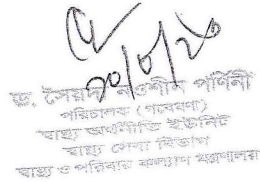 ড. সৈয়দা নওশীন পর্ণিনী
পরিচালক (গবেষণা)
স্বাস্থ্য অর্থনীতি ইউনিট
স্বাস্থ্য সেবা বিভাগ
স্বাস্থ্য ও পরিবার কল্যাণ মন্ত্রণালয়